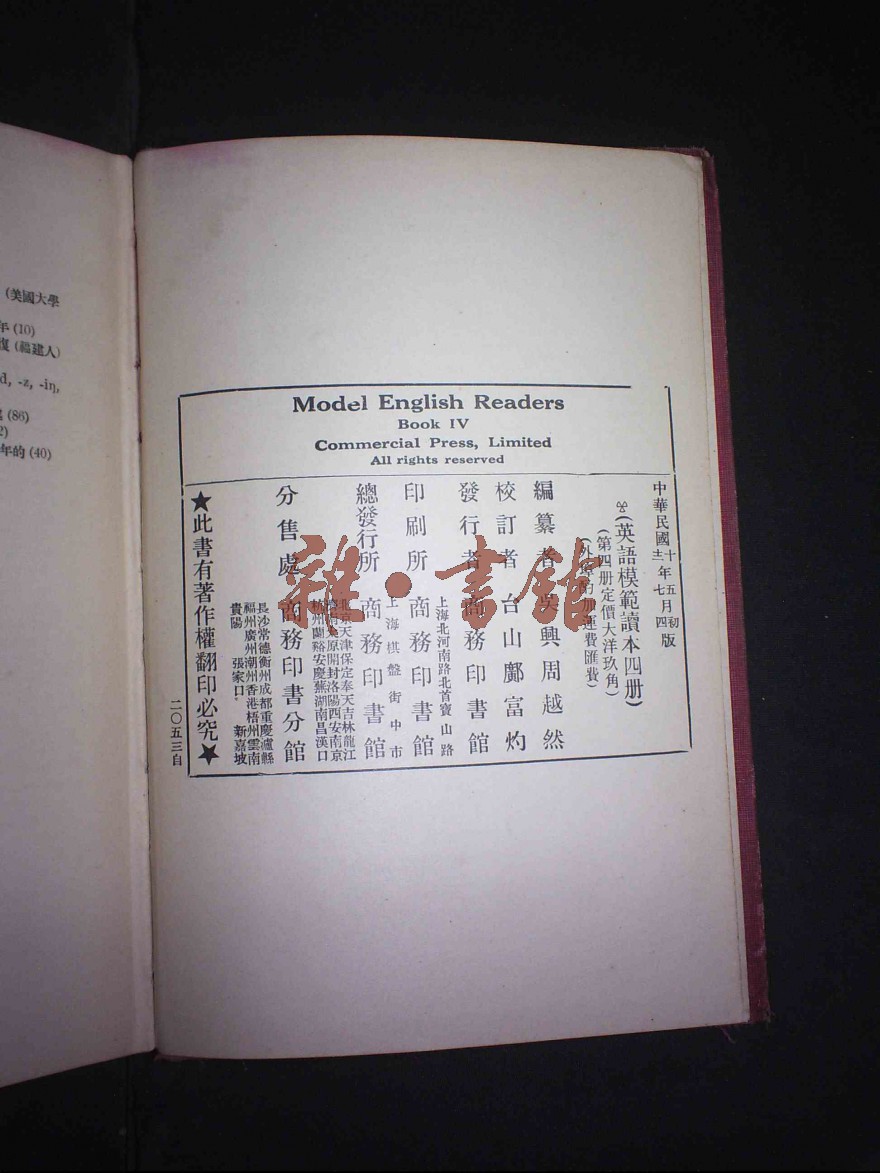 (美國大學
年 (10)
復 (福建人)
d, -z, -iŋ,
(86)
2)
年的 (40)
Model English Readers
Book IV
Commercial Press, Limited
All rights reserved
中華民國十年五月初版
七四版
(英語模範讀本四册)
(第四册定價大洋玖角)
(外埠酌加運費匯費)
編纂者 吳興周越然
校訂者 台山鄺富灼
發行者 商務印書館
上海北河南路北首寶山路
印刷所 商務印書館
上海棋盤街中市
總發行所 商務印書館
北京天津保定奉天吉林龍江
濟南太原開封洛陽西安南京
杭州蘭谿安慶蕪湖南昌漢口
分售處 商務印書分館
長沙常德衡州成都重慶瀘縣
福州廣州潮州香港梧州雲南
貴陽 張家口 新嘉坡
★此書有著作權翻印必究★
二〇五三自
雜·書館